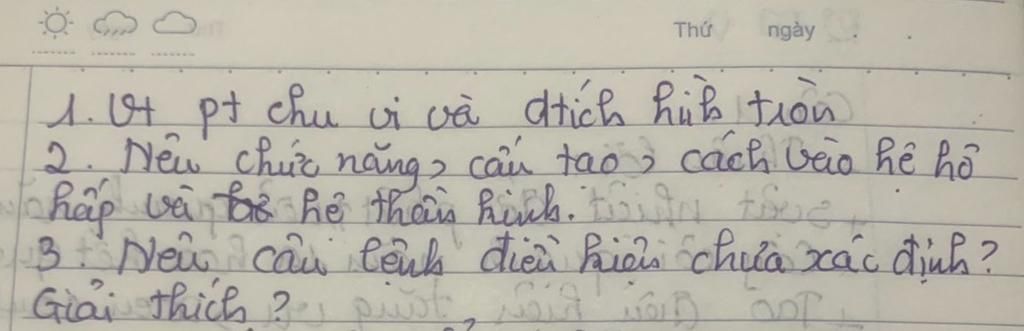 Thứ ngày
1. Vt pt chu vi và dtích hình tròn
2. Nêu chức năng, cấu tạo, cách bảo hệ hô
hấp và hệ thần kinh.
3. Nêu câu lệnh điều kiện chưa xác định?
Giải thích?